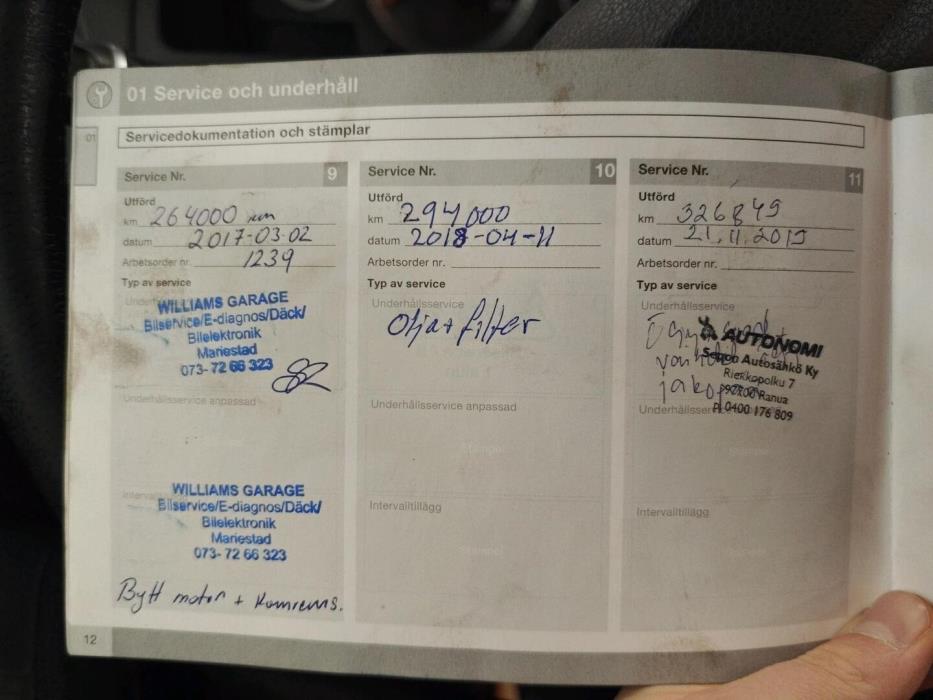 01 Service och underhåll
01
Servicedokumentation och stämplar
Service Nr. 9
Utförd
km 264000 km
datum 2017-03-02
Arbetsorder nr. 1239
Typ av service
WILLIAMS GARAGE
Bilservice/E-diagnos/Däck/
Bilelektronik
Mariestad
073-72 66 323
Underhållsservice anpassad
WILLIAMS GARAGE
Bilservice/E-diagnos/Däck/
Bilelektronik
Mariestad
073-72 66 323
Bytt motor + Kamrems.
Service Nr. 10
Utförd
km 294000
datum 2018-04-11
Arbetsorder nr.
Typ av service
Underhållsservice
Olja + filter
Underhållsservice anpassad
Stämpel
Intervalltillägg
Stämpel
Service Nr. 11
Utförd
km 326849
datum 21.11.2019
Arbetsorder nr.
Typ av service
Underhållsservice
AUTONOMI
Seppo Autosähkö Ky
Riekkopolku 7
Ranua
P. 0400 176 809
Stämpel
Intervalltillägg
Stämpel
12